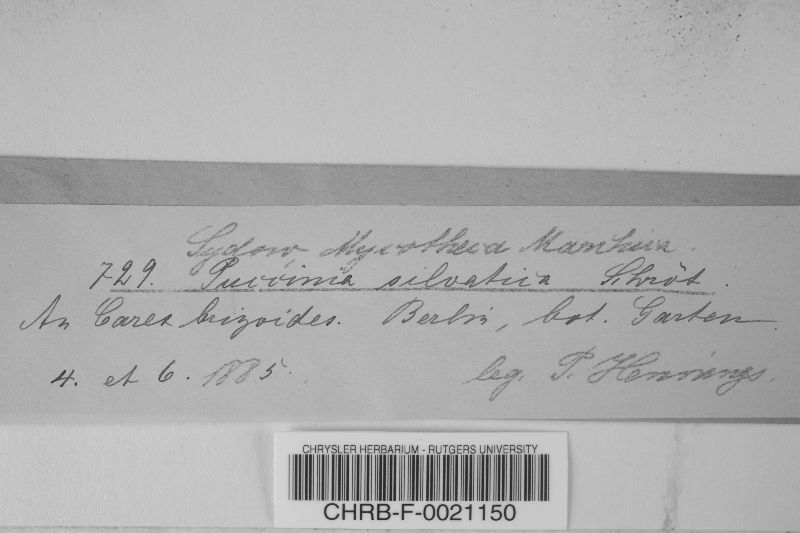 Sydow Mycotheca Marchica.
729. Puccinia silvatica Schröt.
An Carex brizoides. Berlin, bot. Garten
4. et 6. 1885. leg. P. Hennings.
CHRYSLER HERBARIUM - RUTGERS UNIVERSITY
CHRB-F-0021150